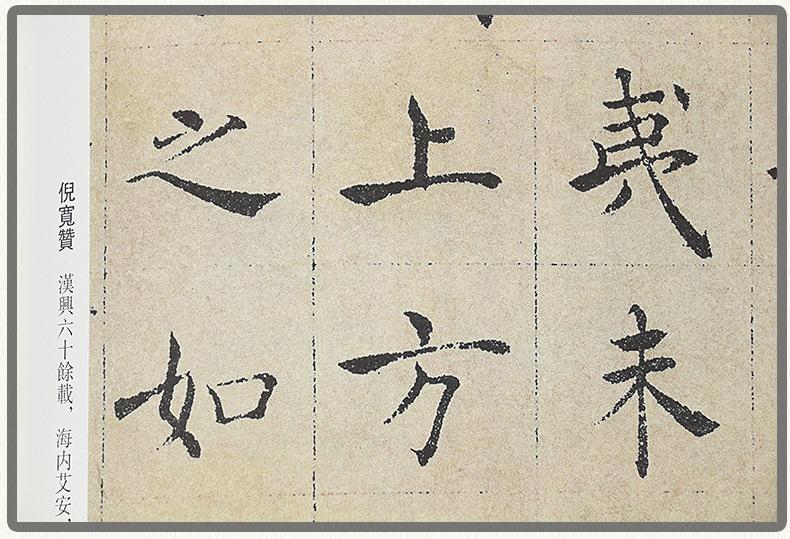 夷未
上方
之如
倪寬贊 漢興六十餘載，海内艾安，